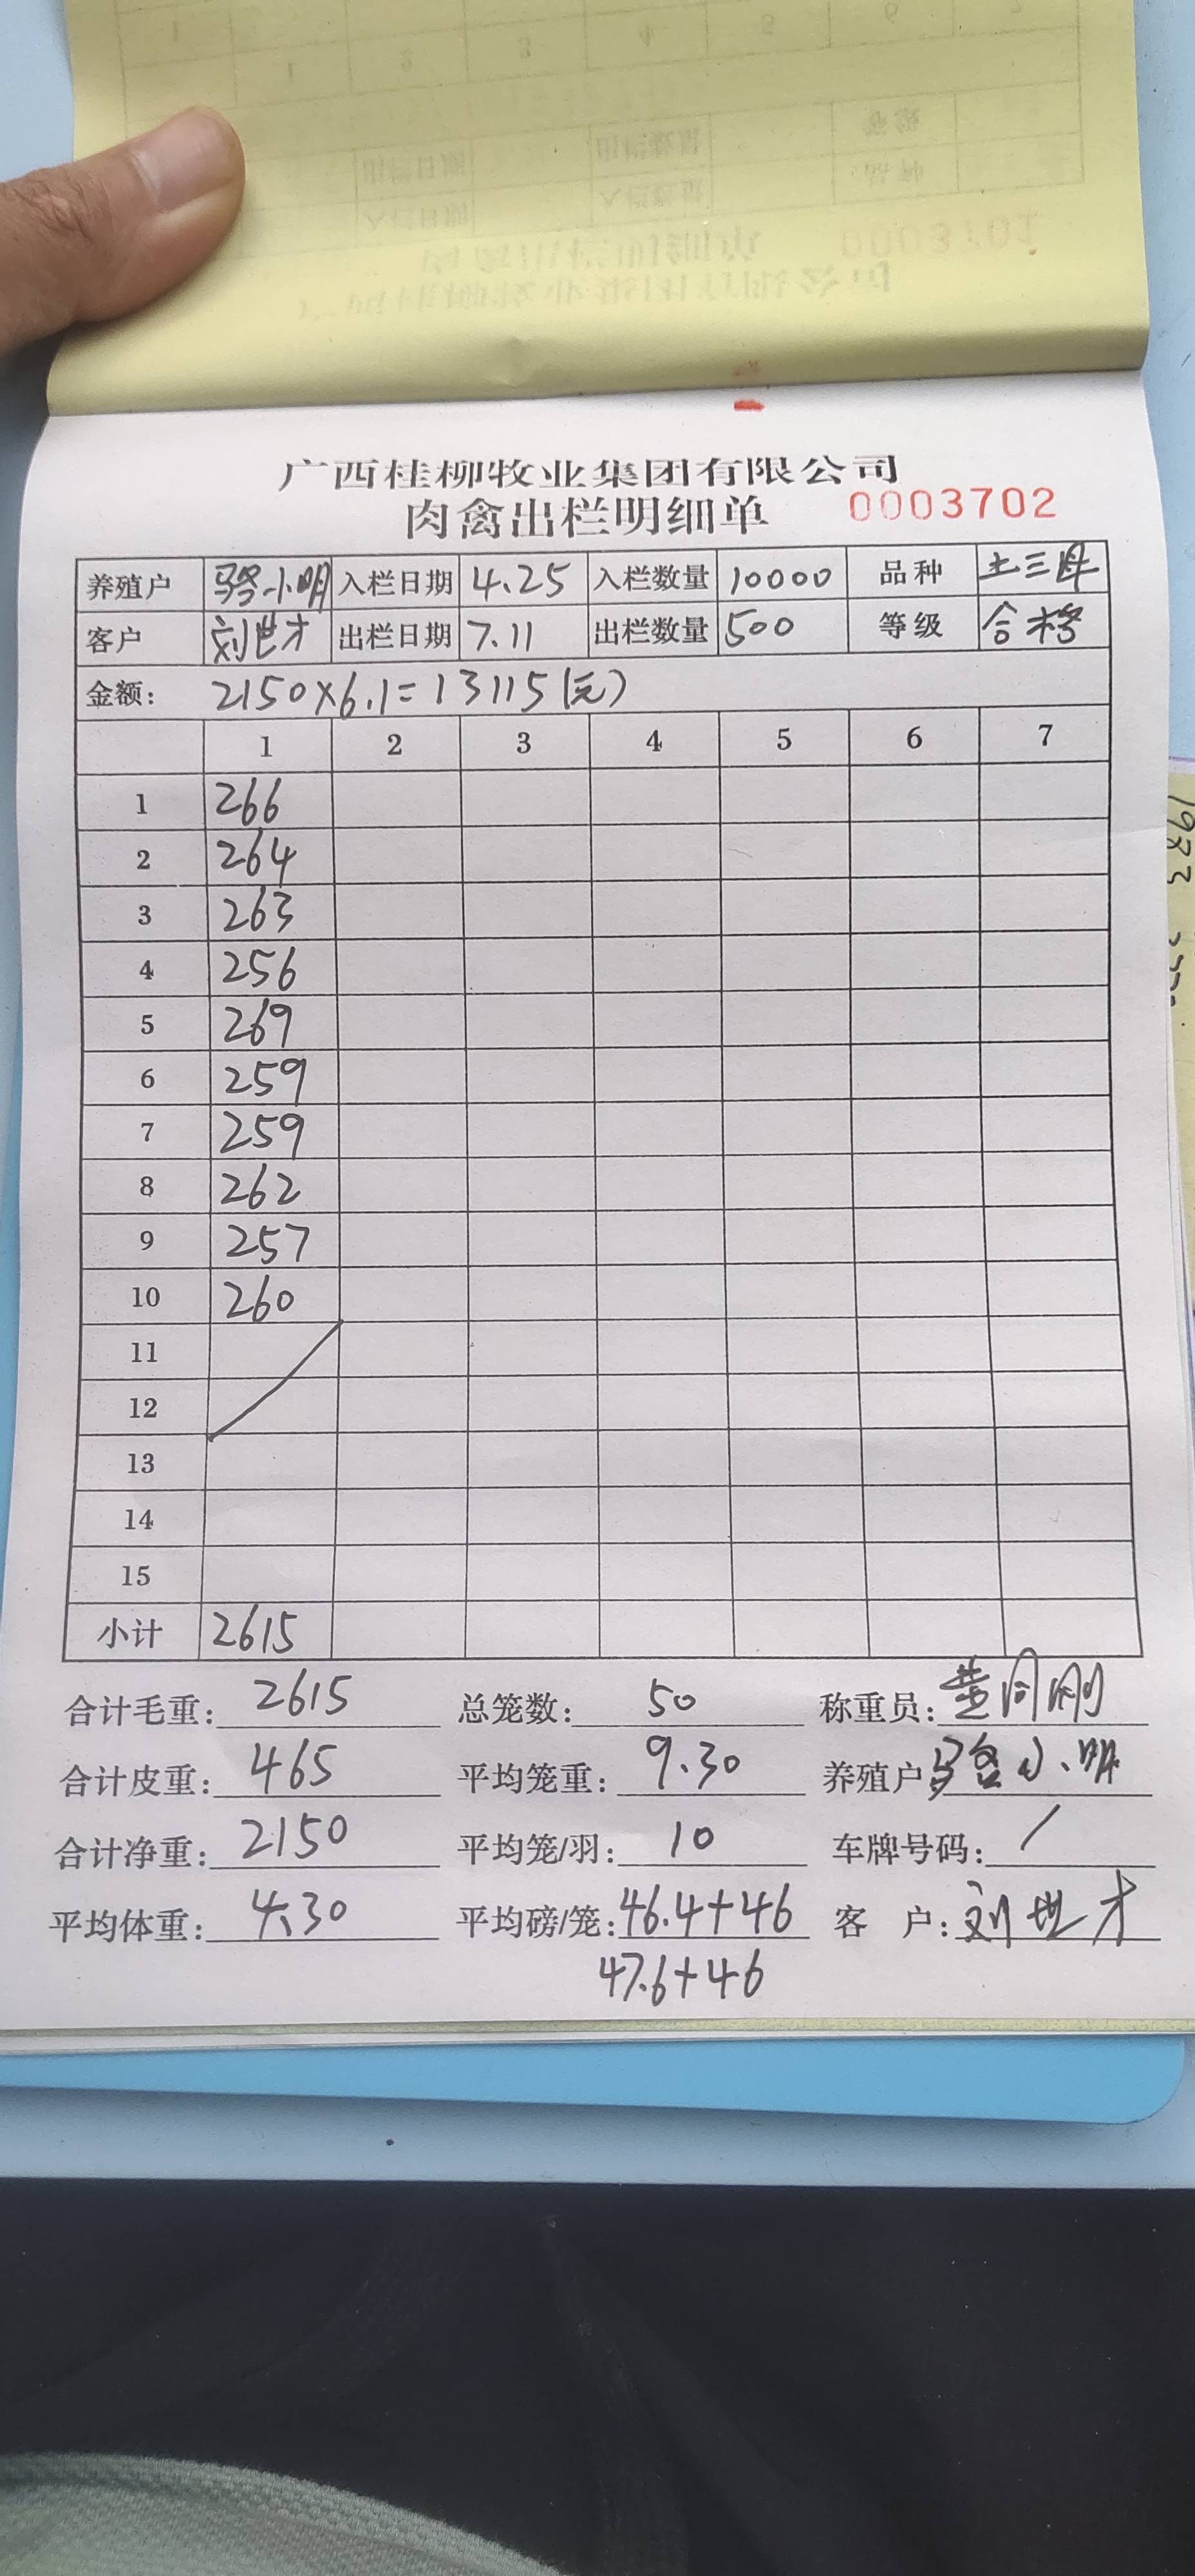 广西桂柳牧业集团有限公司
肉禽出栏明细单 0003702
养殖户 骆小明 入栏日期 4.25 入栏数量 10000 品种 土三母
客户 刘世才 出栏日期 7.11 出栏数量 500 等级 合格
金额: 2150×6.1=13115(元)
1 2 3 4 5 6 7
1 266
2 264
3 263
4 256
5 269
6 259
7 259
8 262
9 257
10 260
11
12
13
14
15
小计 2615
合计毛重: 2615 总笼数: 50 称重员:
合计皮重: 465 平均笼重: 9.30 养殖户 骆小明
合计净重: 2150 平均笼/羽: 10 车牌号码: /
平均体重: 4.30 平均磅/笼: 46.4+46 客 户: 刘世才
47.6+46